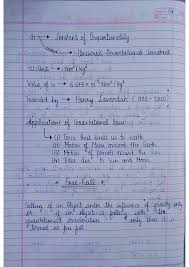 G → Constant of Proportionality
→ Universal Gravitational Constant
SI Unit → Nm²/kg²
Value of G → 6.673 × 10⁻¹¹ Nm²/kg²
Founded by → Henry Cavendish (1731 - 1810)
Applications of Gravitational Law →
(i) Force that binds us to earth
(ii) Motion of Moon around the Earth
(iii) Motion of planets around the
(iv) Tides due to Sun and Moon
Free Fall
Falling of an Object under the influence of gravity
of an object is falling with the
gravitational acceleration only then it is
termed as free fall